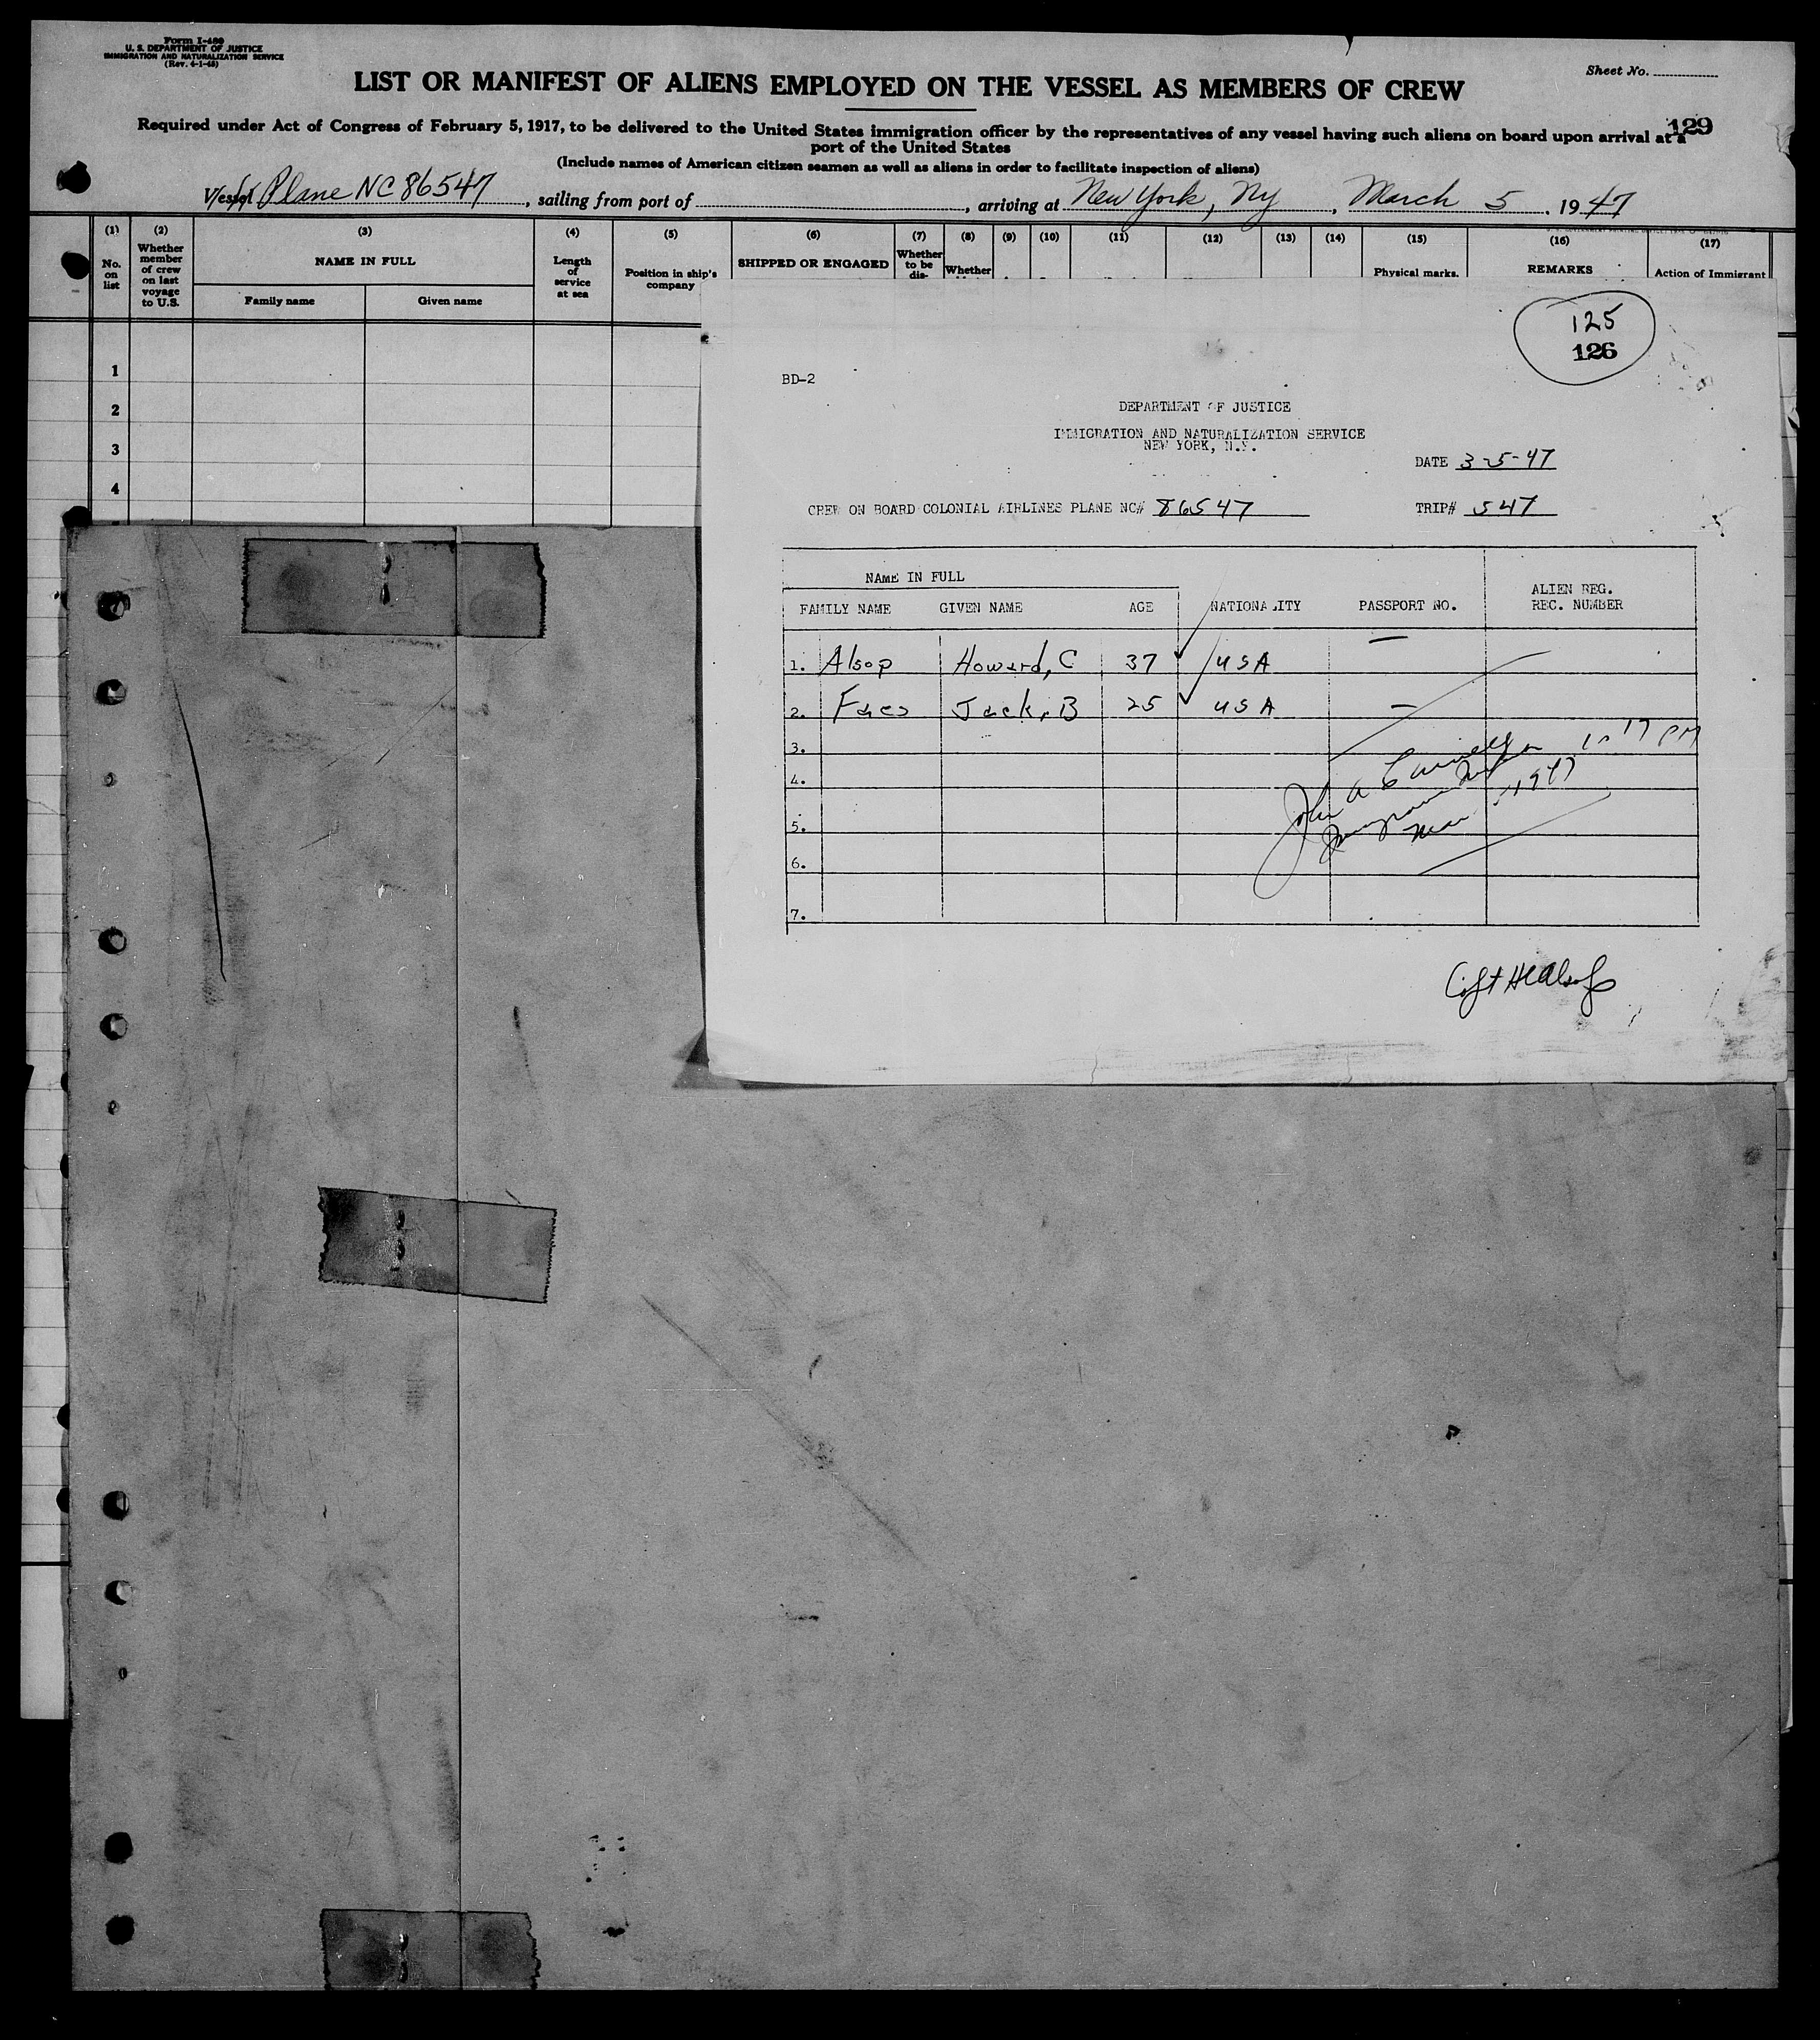 Form I-480
U. S. DEPARTMENT OF JUSTICE
IMMIGRATION AND NATURALIZATION SERVICE
(Rev. 4-1-45)
Sheet No.
LIST OR MANIFEST OF ALIENS EMPLOYED ON THE VESSEL AS MEMBERS OF CREW
129
Required under Act of Congress of February 5, 1917, to be delivered to the United States immigration officer by the representatives of any vessel having such aliens on board upon arrival at a
port of the United States
(Include names of American citizen seamen as well as aliens in order to facilitate inspection of aliens)
Vessel Plane NC 86547, sailing from port of , arriving at New York, Ny, March 5, 1947
(1) (2) (3) (4) (5) (6) (7) (8) (9) (10) (11) (12) (13) (14) (15) (16) (17)
No. on list
Whether member of crew on last voyage to U.S.
NAME IN FULL
Family name Given name
Length of service at sea
Position in ship's company
SHIPPED OR ENGAGED
Whether to be dis-
Whether
Physical marks.
REMARKS
Action of Immigrant
1
2
3
4
125
126
BD-2
DEPARTMENT OF JUSTICE
IMMIGRATION AND NATURALIZATION SERVICE
NEW YORK, N.Y.
DATE 3-5-47
CREW ON BOARD COLONIAL AIRLINES PLANE NC# 86547 TRIP# 547
NAME IN FULL
FAMILY NAME GIVEN NAME AGE NATIONALITY PASSPORT NO. ALIEN REG. REC. NUMBER
1. Alsop Howard, C 37 USA —
2. Jack, B 25 USA —
3.
4.
5.
6.
7.
John A
1947
Capt HC Alsop